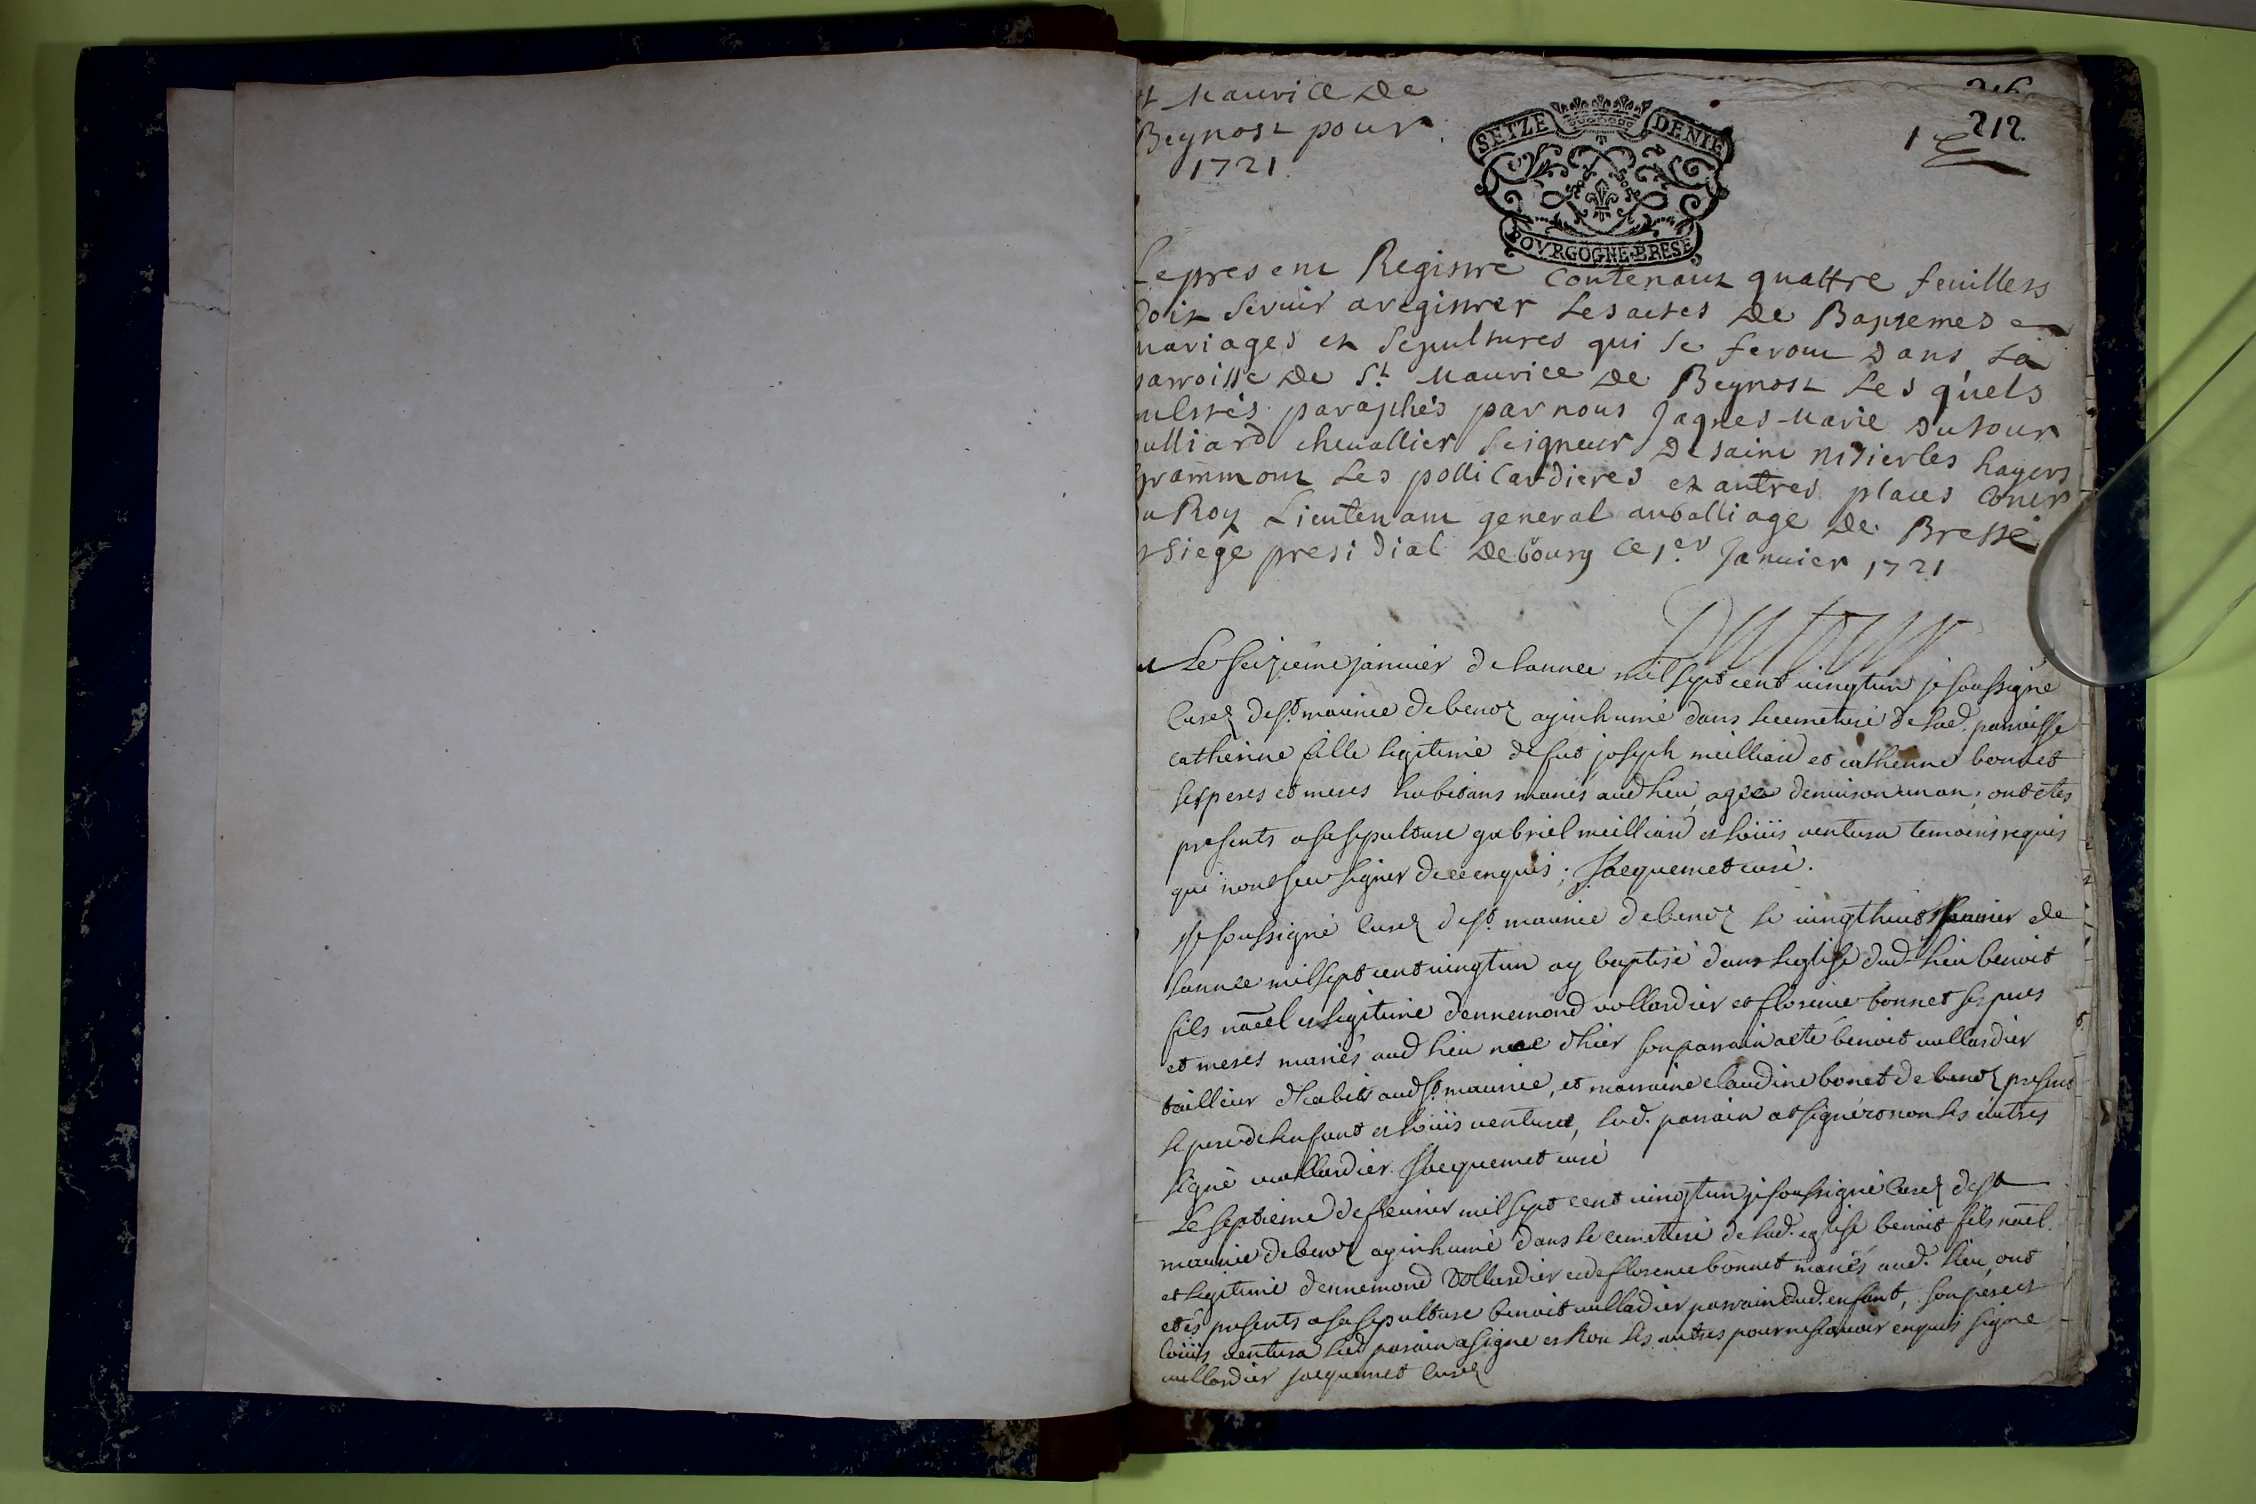 St Maurice De
Beynost pour
1721
SEIZE DENIE
BOVRGOGNE-BRESE
1 212.
Le present Registre contenant quattre feuillets
Doit servir a registrer Les actes De Baptemes
mariages et Sepultures qui se feront Dans La
parroisse De St Maurice De Beynost Les quels
paraphés par nous Jaques-Marie Dutour
vulliard chevallier Seigneur De saint nisier les
grammont Les pollicardieres et autres places
Du Roy Lieutenant general au balliage De Bresse
Siege presidial De bourg Ce 1.er Janvier 1721
Dutour
Le seizieme janvier de lannee mil sept cent vingt un je soussigné
Curez de st maurice de benoz ay inhumé dans le cemetiere de lad. parroisse
catherine fille legitime de fut joseph meilliard et catherine bonnet
ses peres et meres habitans mariés aud lieu, agée denviron un an; ont étés
presents a sa sepulture gabriel meilliard et loüis ventura temoins requis
qui nont sceu signer de ce enquis; Jacquemet curé.
Je soussigné Curez de st maurice de benoz le vingt huit Janvier de
lannee mil sept cent vingt un ay baptisé dans leglise dud. lieu benoit
fils naēl et legitime dennemond vullardier et florence bonnet ses peres
et meres mariés aud lieu né dhier son parrain a eté benoit vullardier
tailleur dhabits aud st maurice, et marraine claudine bonet de benoz presents
le pere de lenfant et loüis ventura, led. parrain a signé et non les autres
signé vullardier Jacquemet curé
Le septieme de fevrier mil sept cent vingt un je soussigné Curez de st
maurice de benoz ay inhumé dans le cemetiere de lad. eglise benoit fils naēl.
et legitime dennemond Vollardier et de florence bonnet mariés aud. lieu, ont
etés presents a sa sepulture benoit vulladier parrain dud. enfant, son pere et
loüis ventura led parain a signe et non les autres pour ne scavoir enquis signe
vullardier jacquemet Curez